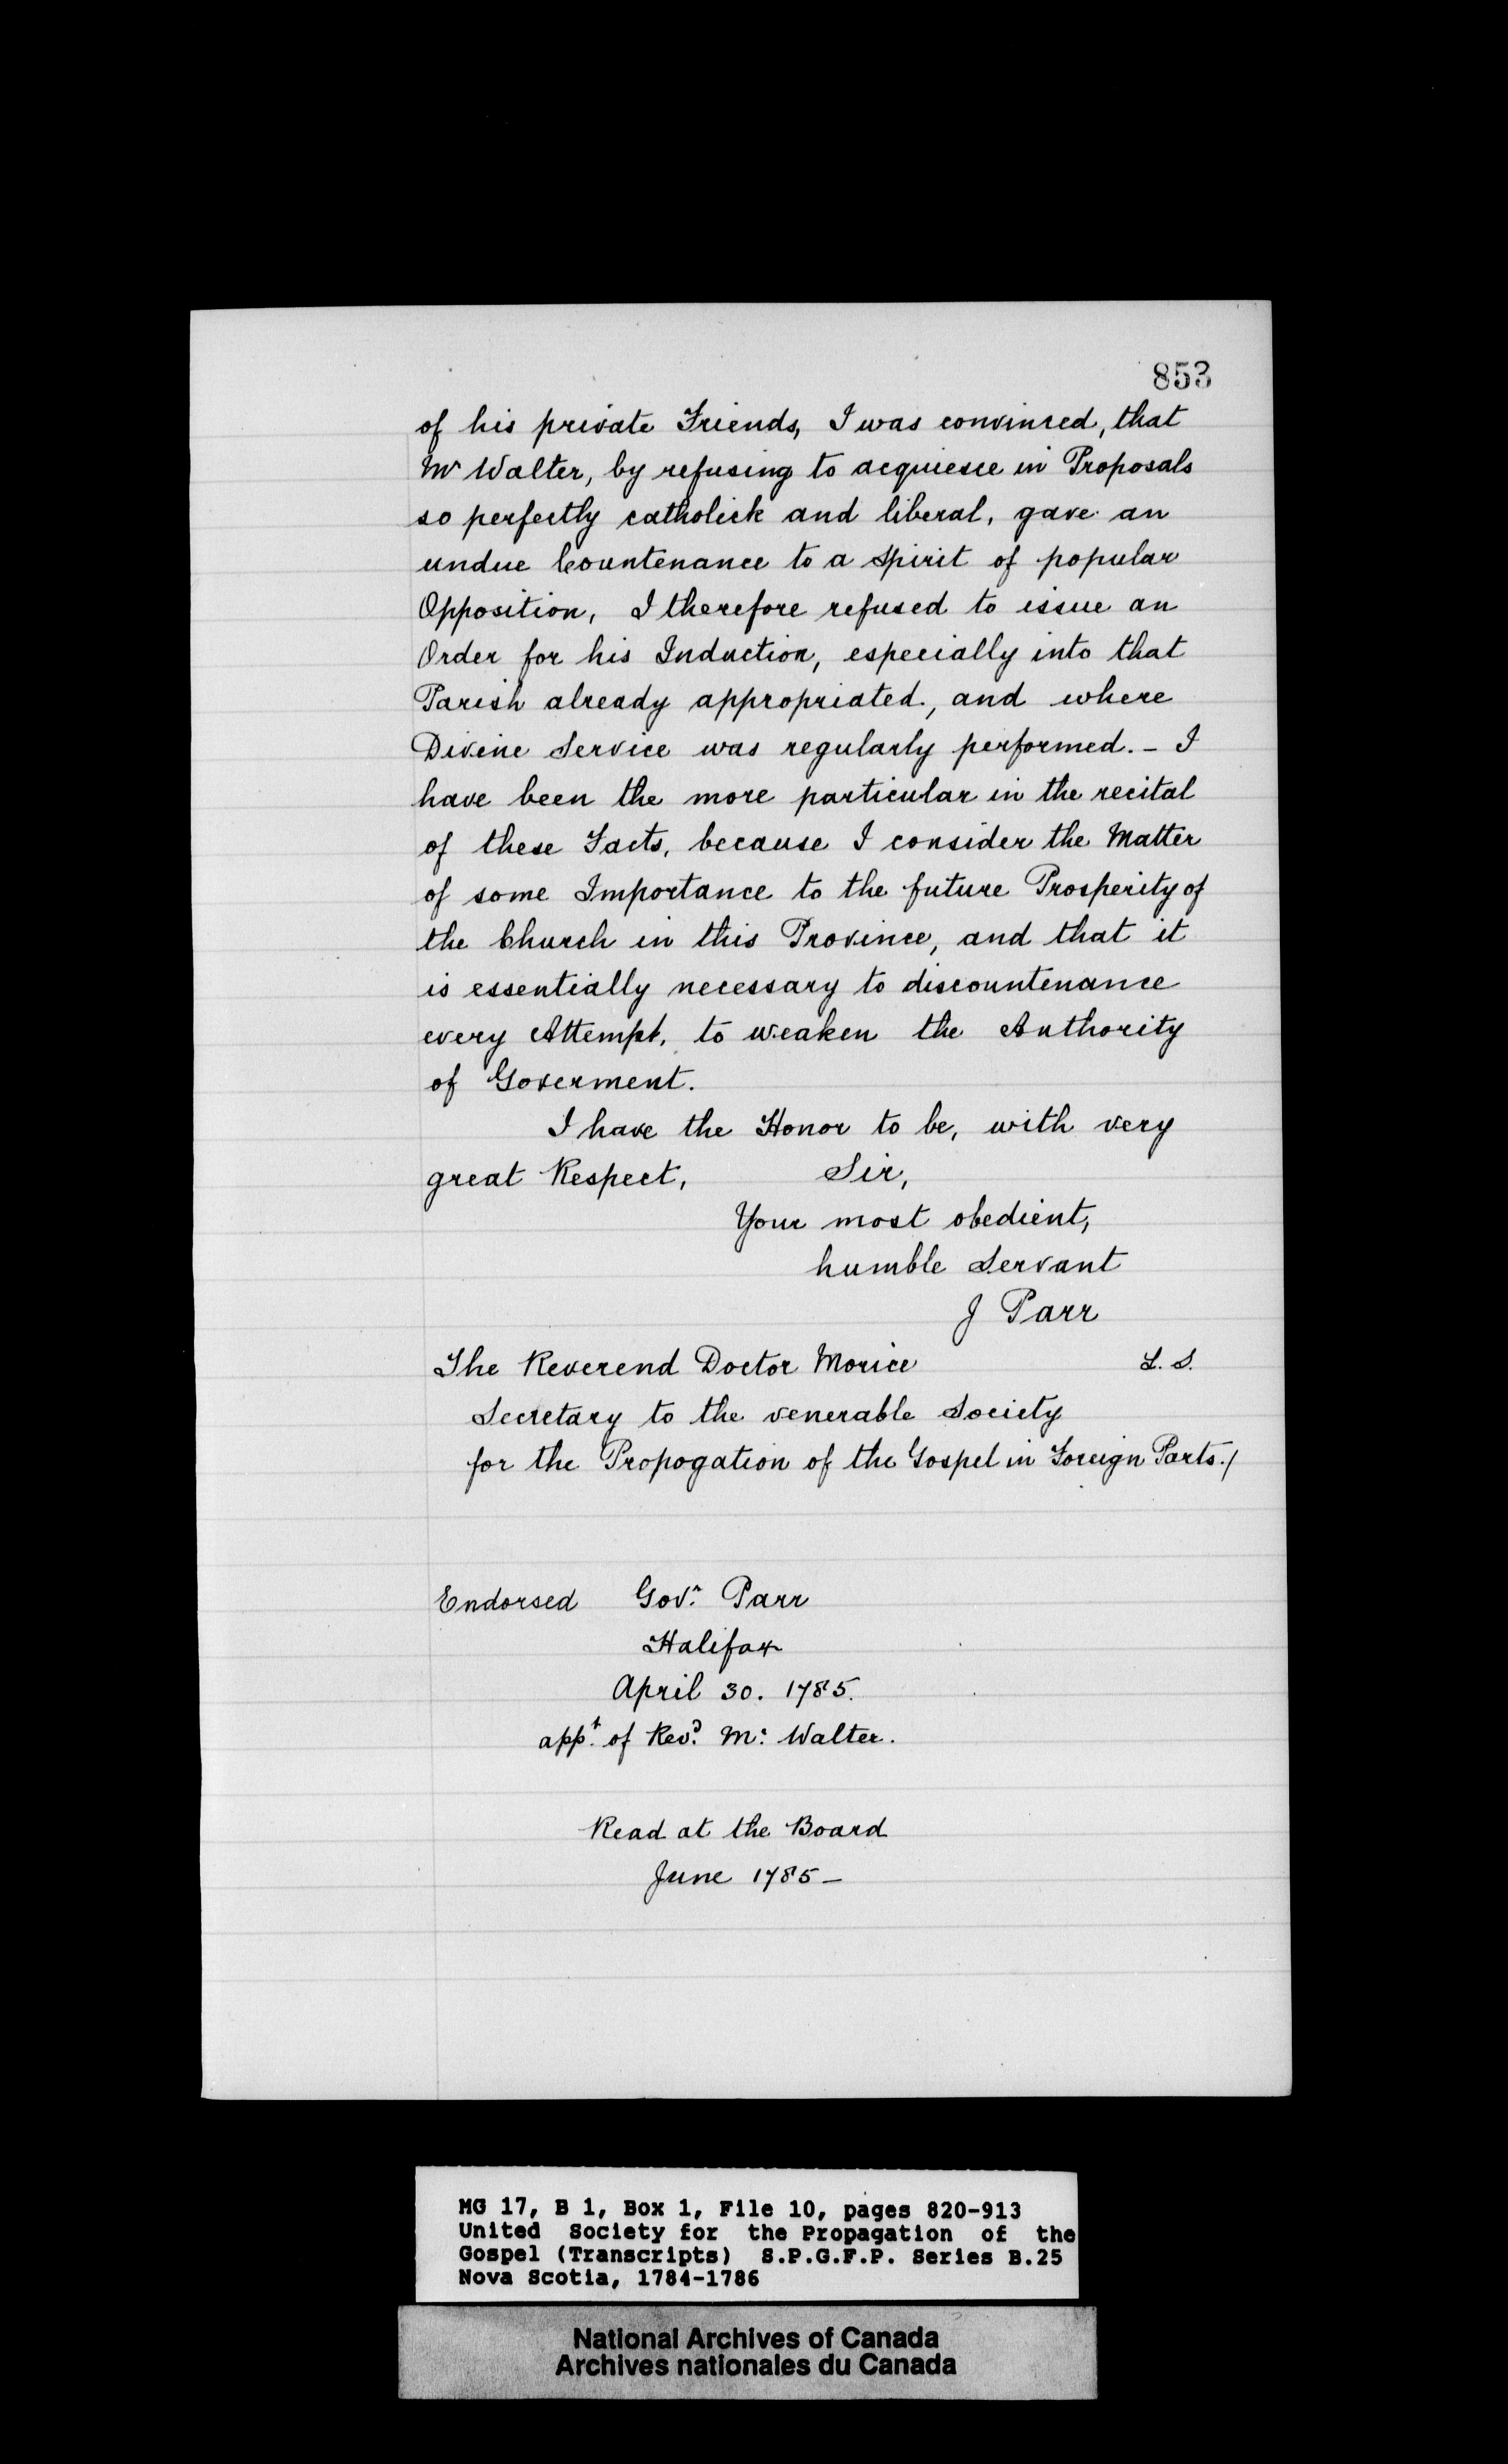 853
of his private Friends, I was convinced, that
Mr Walter, by refusing to acquiesce in Proposals
so perfectly catholick and liberal, gave an
undue Countenance to a Spirit of popular
Opposition, I therefore refused to issue an
Order for his Induction, especially into that
Parish already appropriated, and where
Divine Service was regularly performed. – I
have been the more particular in the recital
of these Facts, because I consider the Matter
of some Importance to the future Prosperity of
the Church in this Province, and that it
is essentially necessary to discountenance
every Attempt, to weaken the Authority
of Goverment.
I have the Honor to be, with very
great Respect, Sir,
Your most obedient,
humble Servant
J Parr
The Reverend Doctor Morice L. S.
Secretary to the venerable Society
for the Propogation of the Gospel in Foreign Parts./
Endorsed Govr. Parr
Halifax
April 30. 1785.
appt. of Revd. Mr. Walter.
Read at the Board
June 1785 –
MG 17, B 1, Box 1, File 10, pages 820-913
United Society for the Propagation of the
Gospel (Transcripts) S.P.G.F.P. Series B.25
Nova Scotia, 1784-1786
National Archives of Canada
Archives nationales du Canada